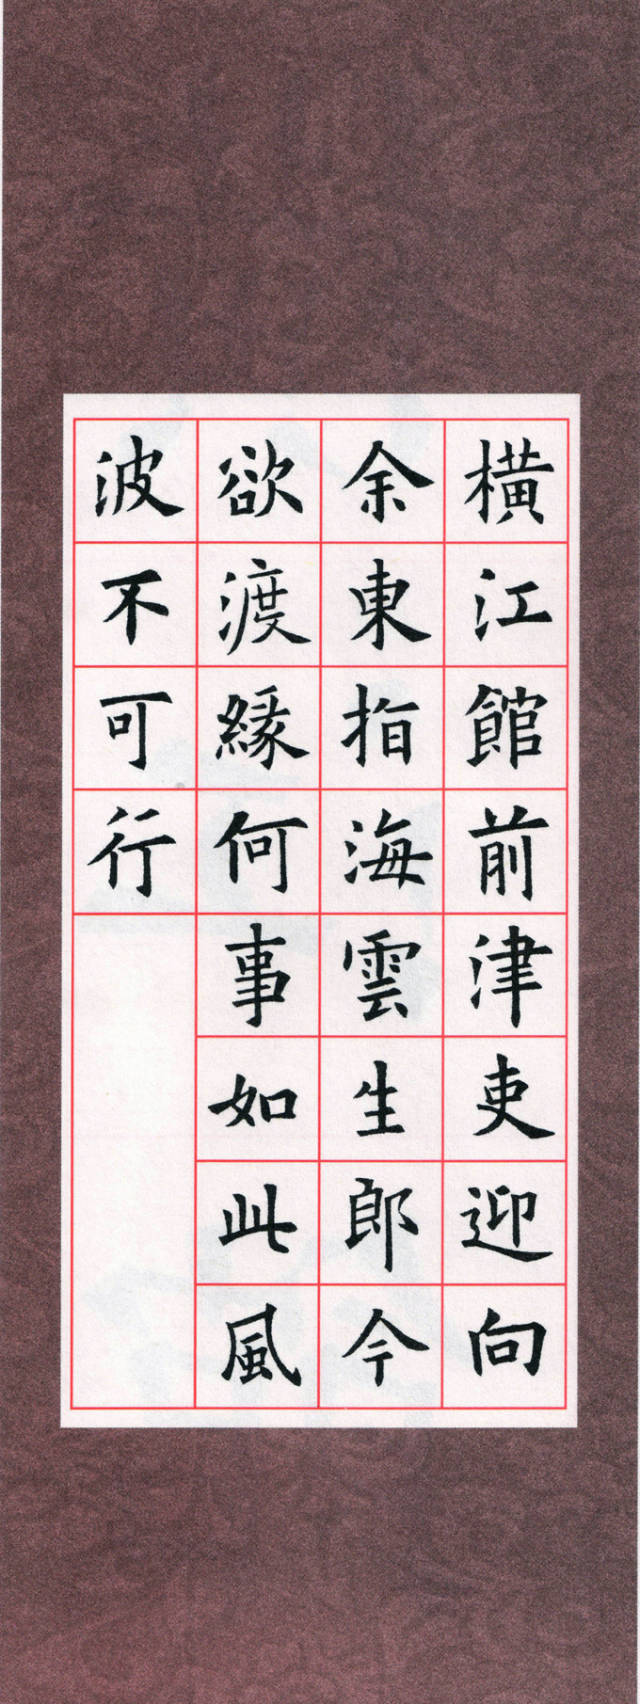 橫江館前津吏迎向
余東指海雲生郎今
欲渡緣何事如此風
波不可行